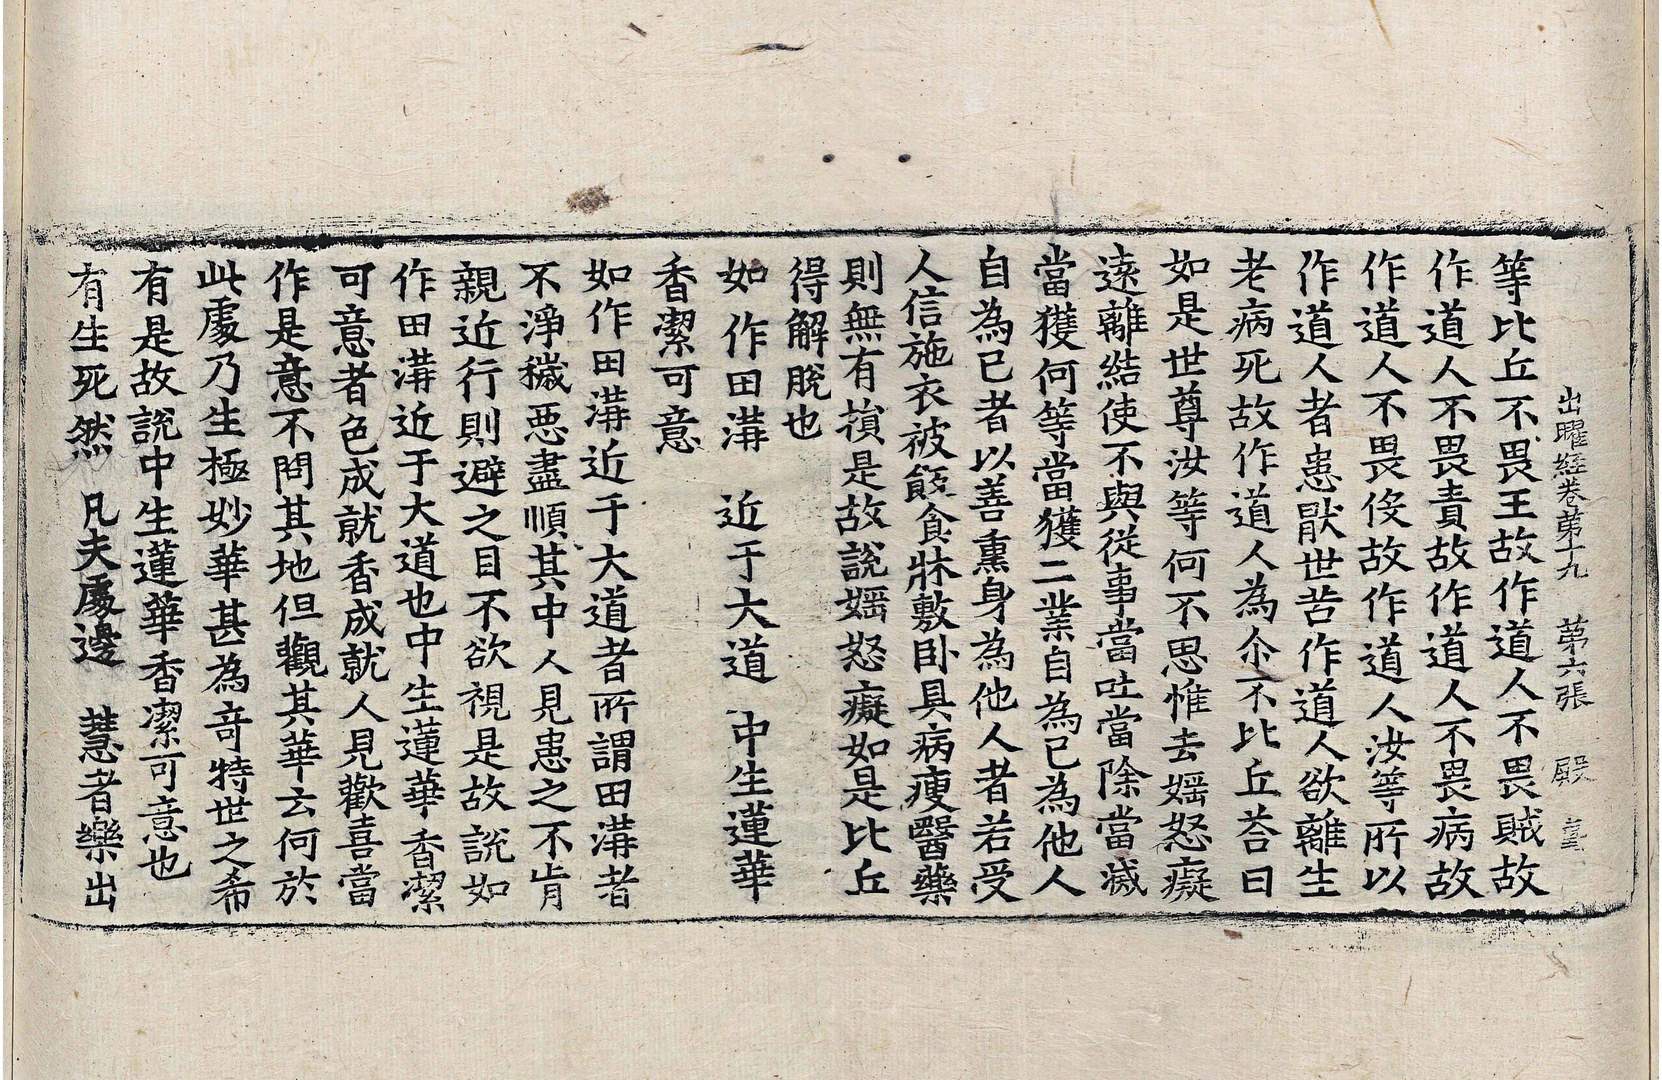 出曜経卷第十九　第六張　殿
等比丘不畏王故作道人不畏賊故
作道人不畏責故作道人不畏病故
作道人不畏侫故作道人汝等所以
作道人者患猒世苦作道人欲離生
老病死故作道人為尒不比丘荅曰
如是世尊汝等何不思惟去婬怒癡
遠離結使不與從事當吐當除當滅
當獲何等當獲二業自為已為他人
自為已者以善熏身為他人者若受
人信施衣被飯食牀敷卧具病瘦醫藥
則無有損是故說婬怒癡如是比丘
得解脫也
如作田溝　近于大道　中生蓮華
香潔可意
如作田溝近于大道者所謂田溝者
不淨穢惡盡順其中人見患之不肯
親近行則避之目不欲視是故說如
作田溝近于大道也中生蓮華香潔
可意者色成就香成就人見歡喜當
作是意不問其地但觀其華云何於
此處乃生極妙華甚為奇特世之希
有是故說中生蓮華香潔可意也
有生死然　凡夫處邊　慧者樂出